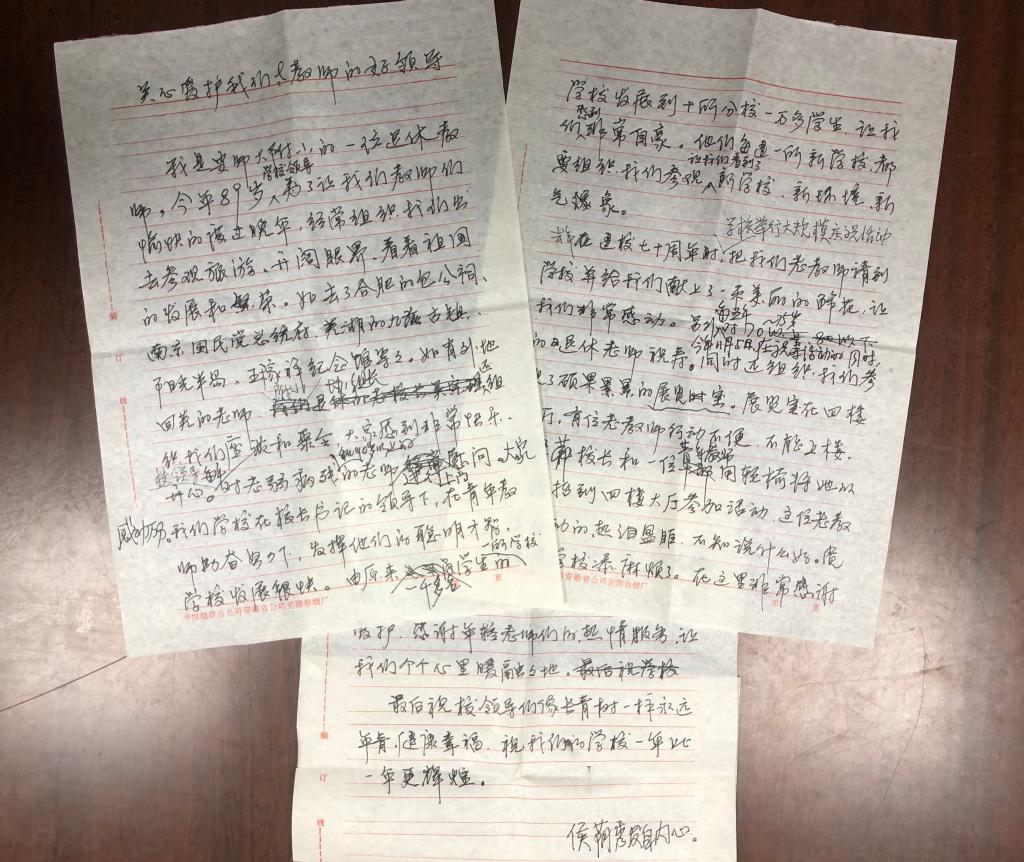 关心爱护我们老教师的好领导
我是安师大附小的一位退休教
学校领导
师。今年89岁,为了让我们教师们
愉快的度过晚年,经常组织我们出
去参观旅游、开阔眼界、看看祖国
的发展和繁荣。如去了合肥的包公祠、
南京国民党总统府、芜湖的九莲古镇、
阳光半岛、王稼祥纪念馆等等。如有外地
回芜的老师
组
织我们座谈和聚会,大家感到非常快乐、
开心。对老弱病残的老师 慰问。大家
感动万分。我们学校在校长书记的领导下,在青年教
师勤奋努力下,发挥他们的聪明才智,
一所学校
学校发展很快。由原来 学生的
一千多名
中国烟草总公司安徽省公司芜湖卷烟厂 页
学校发展到十所分校一万多学生,让我
感到
们非常自豪。他们每建一所新学校,都
让我们看到了
要组织我们参观新学校、新环境、新
气爆象。
学校举行大规模庆祝活动
并在建校七十周年时,把我们老教师请到
学校并给我们献上了一束美丽的鲜花,让
我们非常感动。另外对70以上80以下
今年11月5日在祝寿活动的同时
的退休老师祝寿。同时还组织我们参
了硕果累累的展览时室。展览室在四楼
厅,有位老教师行动不便,不能上楼,
校长和一位 用轮椅将她从
抬到四楼大厅参加活动,这位老教
动的热泪盈眶,不知说什么好。觉
学校添麻烦了。在这里非常感谢
安徽省公司芜湖卷烟厂 第 页
爱护,感谢年轻老师们的热情服务,让
我们个个心里暖融融地。最后祝学校
最后祝校领导们像长青树一样永远
年青,健康幸福,祝我们的学校一年比
一年更辉煌。
侯菊秀发自内心。
装
订
线
装
订
线